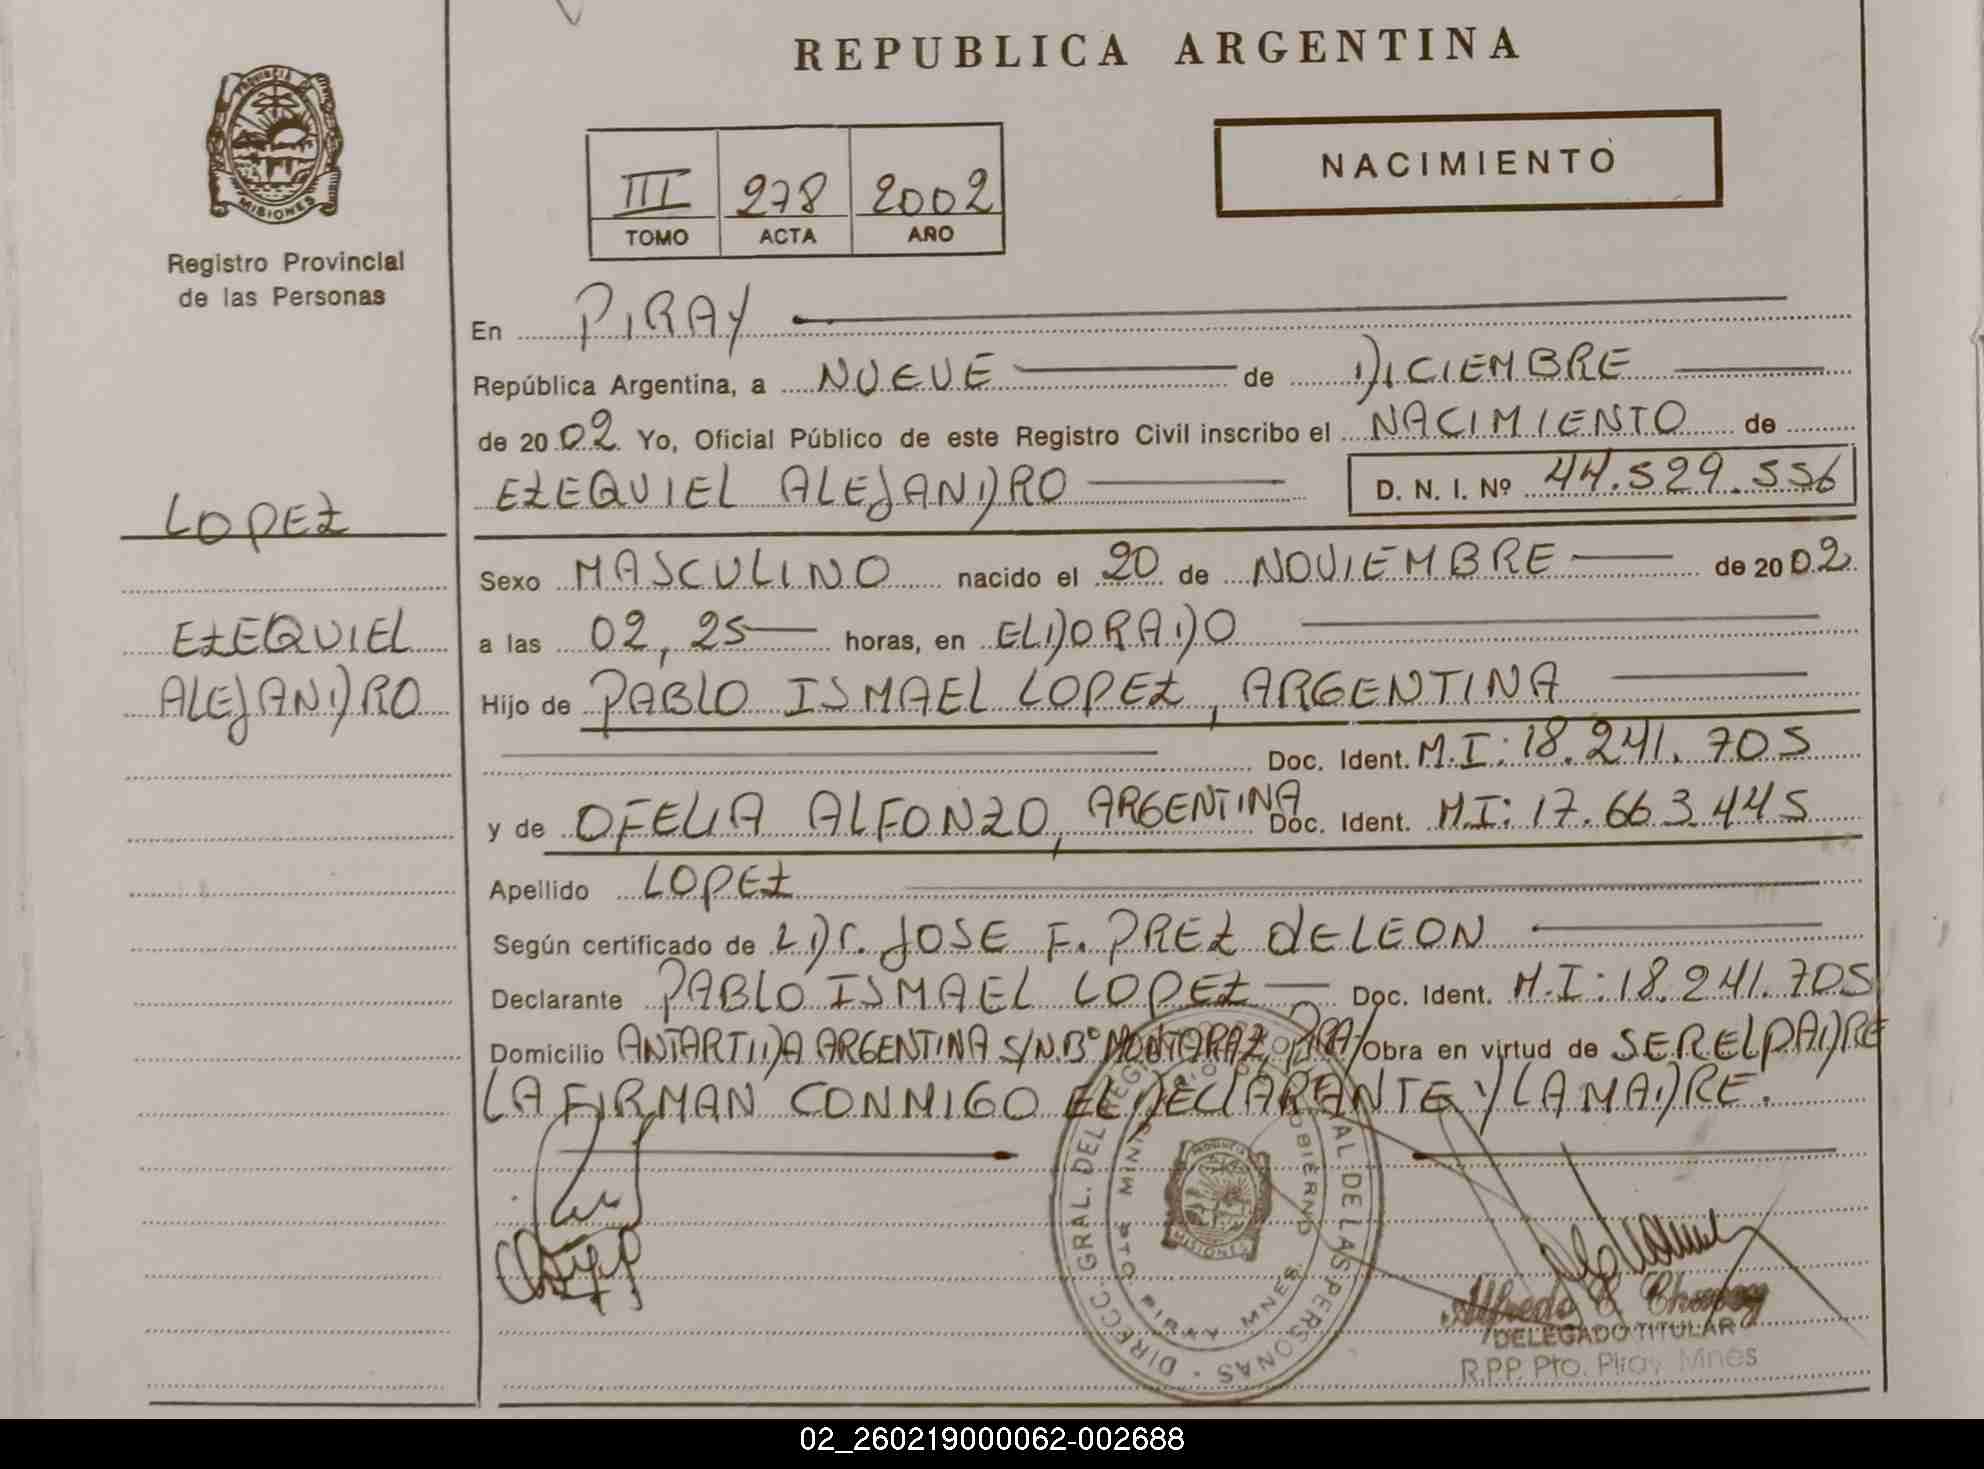 REPUBLICA ARGENTINA
PROVINCIA
MISIONES
Registro Provincial
de las Personas
III 278 2002
TOMO ACTA AÑO
NACIMIENTO
En PIRAY
República Argentina, a NUEVE de DICIEMBRE
de 2002 Yo, Oficial Público de este Registro Civil inscribo el NACIMIENTO de
EZEQUIEL ALEJANDRO D. N. I. Nº 44.529.556
LOPEZ
EZEQUIEL
ALEJANDRO
Sexo MASCULINO nacido el 20 de NOVIEMBRE de 2002
a las 02,25 horas, en ELDORADO
Hijo de PABLO ISMAEL LOPEZ, ARGENTINA
Doc. Ident. M.I: 18.241.705
y de OFELIA ALFONZO, ARGENTINA Doc. Ident. M.I: 17.663.445
Apellido LOPEZ
Según certificado de Dr. JOSE F. PREZ dE LEON
Declarante PABLO ISMAEL LOPEZ Doc. Ident. M.I: 18.241.705
Domicilio ANTARTIDA ARGENTINA S/N. Bº MONTARAZ, Obra en virtud de SER EL PADRE
LA FIRMAN CONMIGO EL DECLARANTE Y LA MADRE.
DIRECC. GRAL. DEL DE LAS PERSONAS
PTO PIRAY MNES
PROVINCIA
MISIONES
Alfredo
DELEGADO TITULAR
R.P.P. Pto. Piray Mnes
02_260219000062-002688